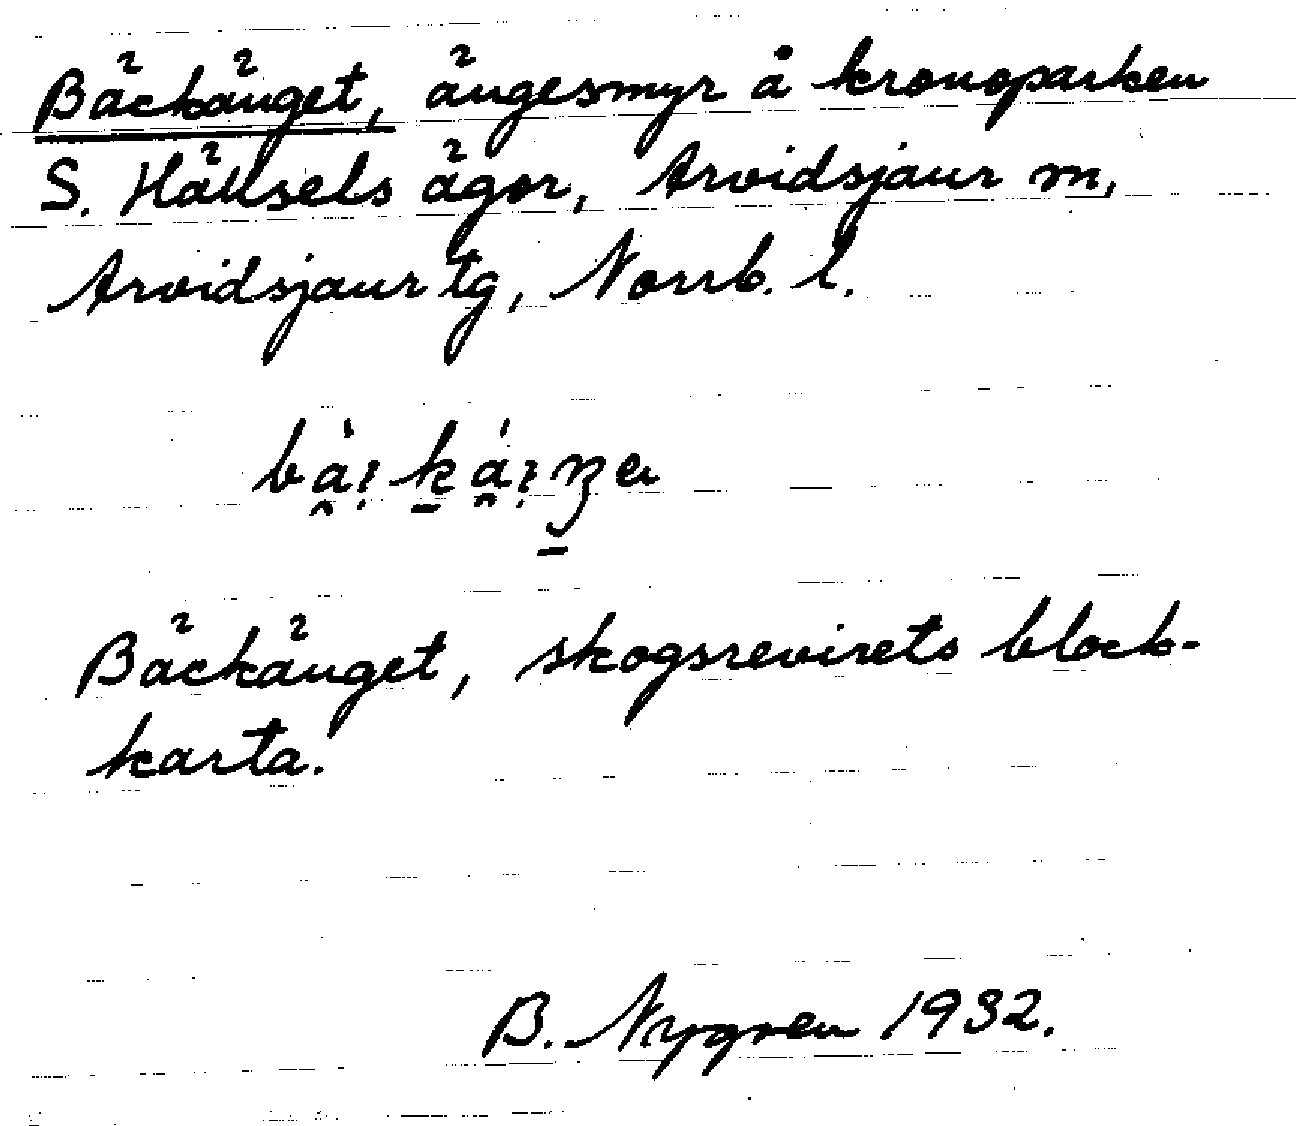 Bäckänget, ängesmyr å kronoparken
S. Hällsels ägor, Arvidsjaur m,
Arvidsjaur tg, Norrb. l.
Bäckänget, skogsrevirets block-
karta.
B. Nygren 1932.